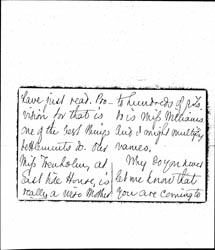 have just read. Pro-
vision for that is
one of the best things
settlements do. Our
Miss Trenholm, at
East Side House, is
really a nice Mother
to hundreds of
so is Miss Williams
and I might multiply
names.
Why do you never
let me know that
you are coming to